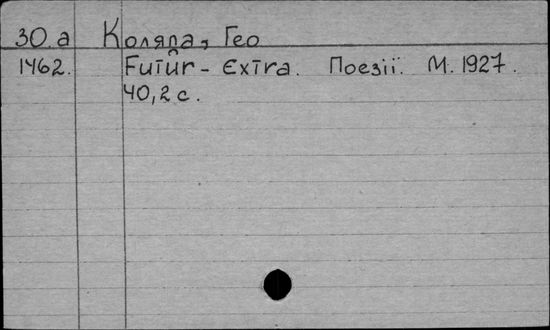 30.а Коляда, Гео
1462. Futur-Extra. Поезії. М. 1927.
40,2 с.